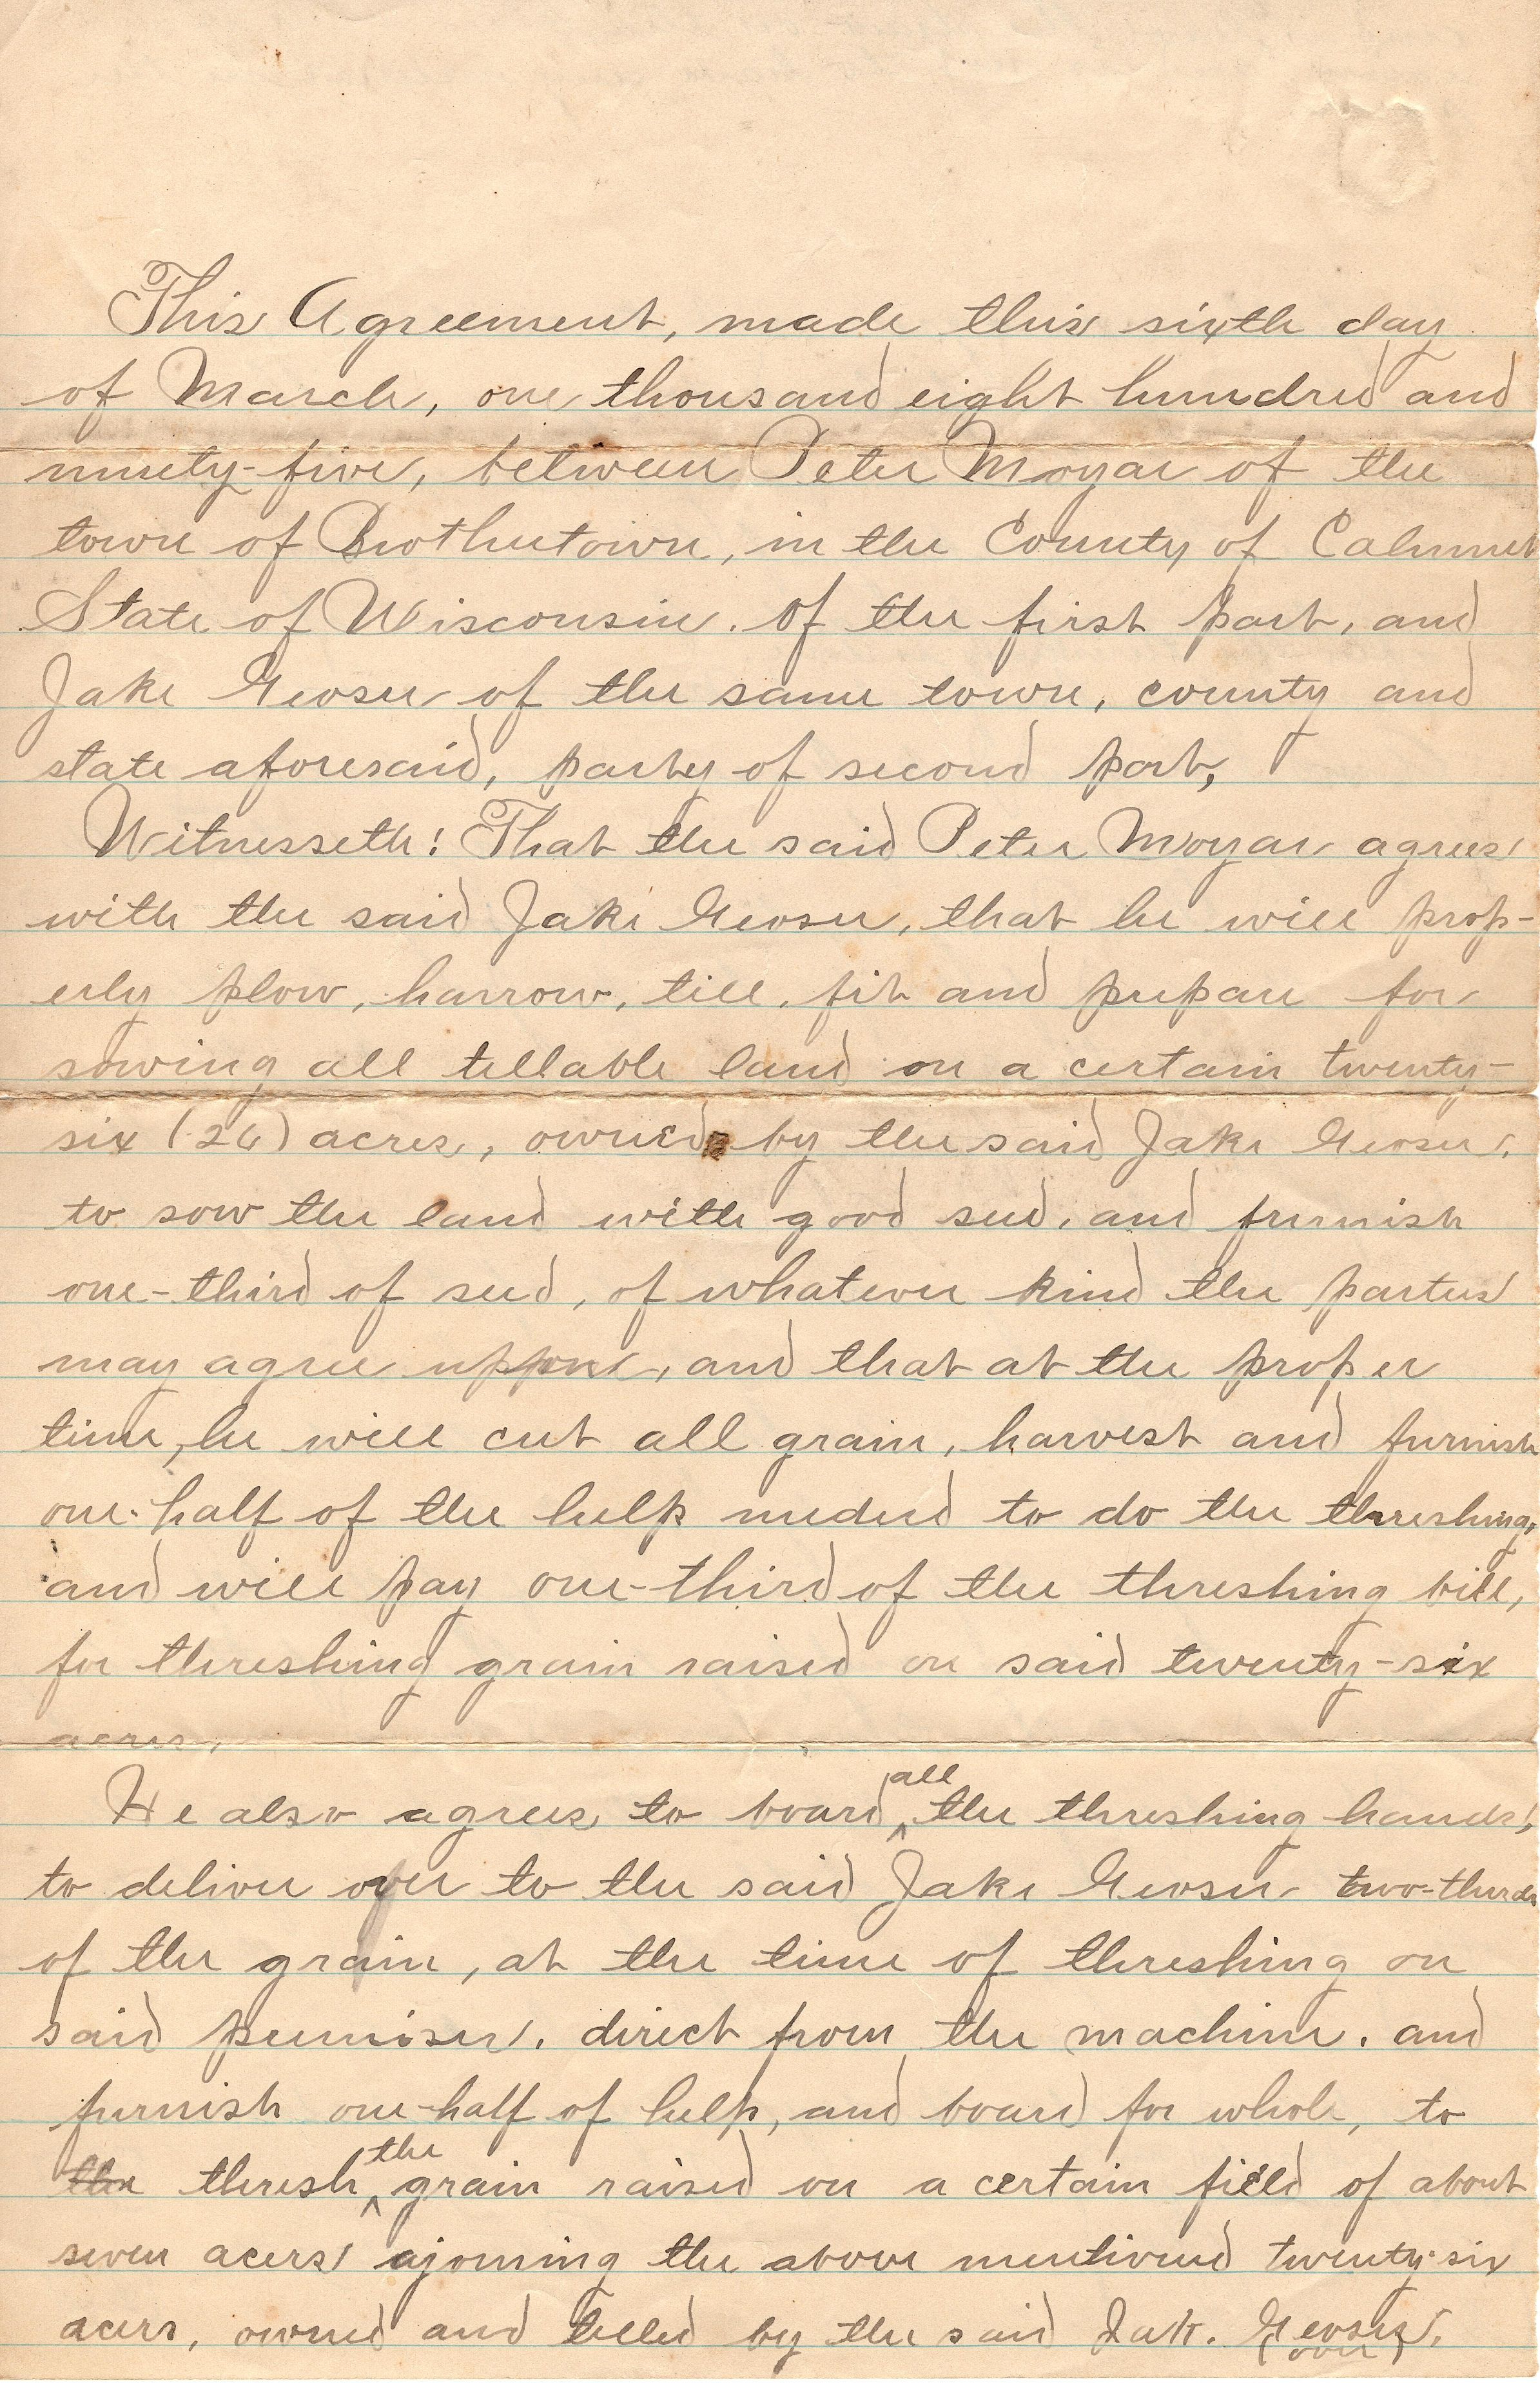 This Agreement, made this sixth day
of March, one thousand eight hundred and
ninety-five, between Peter Moyar of the
town of Brothertown, in the County of Calumet
State of Wisconsin. of the first part, and
Jake Geoser of the same town, county and
state aforesaid, party of second part,
Witnesseth: That the said Peter Moyar agrees
with the said Jake Geoser, that he will prop-
erly plow, harrow, till, fit and prepare for
sowing all tellable land on a certain twenty-
six (26) acres, owned by the said Jake Geoser,
to sow the land with good seed, and furnish
one-third of seed, of whatever kind the parties
may agree uppon, and that at the proper
time, he will cut all grain, harvest and furnish
one-half of the help needed to do the threshing,
and will pay one-third of the threshing bill,
for threshing grain raised on said twenty-six
acres,
He also agrees to board all the threshing hands,
to deliver over to the said Jake Geoser two-thirds
of the grain, at the time of threshing on
said premises, direct from the machine, and
furnish one-half of help, and board for whole, to
the thresh the grain raised on a certain field of about
seven acers ajoining the above mentioned twenty-six
acers, owned and tilled by the said Jak. Geoser.
(over)